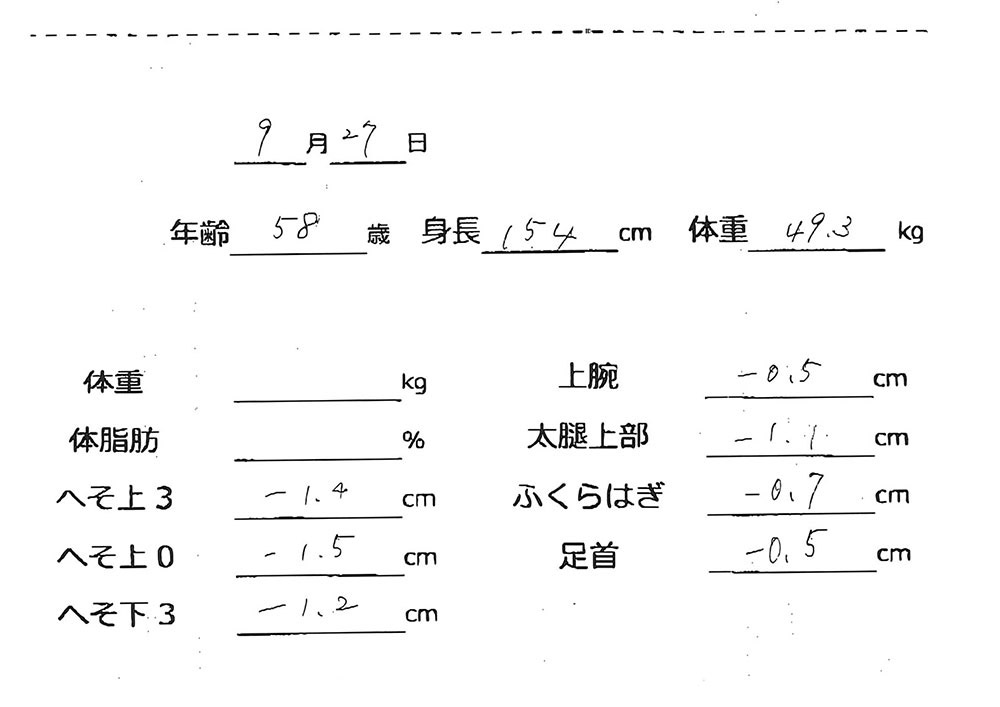 9月27日
年齢 58 歳 身長 154 cm 体重 49.3 kg
体重 kg
体脂肪 %
へそ上3 -1.4 cm
へそ上0 -1.5 cm
へそ下3 -1.2 cm
上腕 -0.5 cm
太腿上部 -1.1 cm
ふくらはぎ -0.7 cm
足首 -0.5 cm